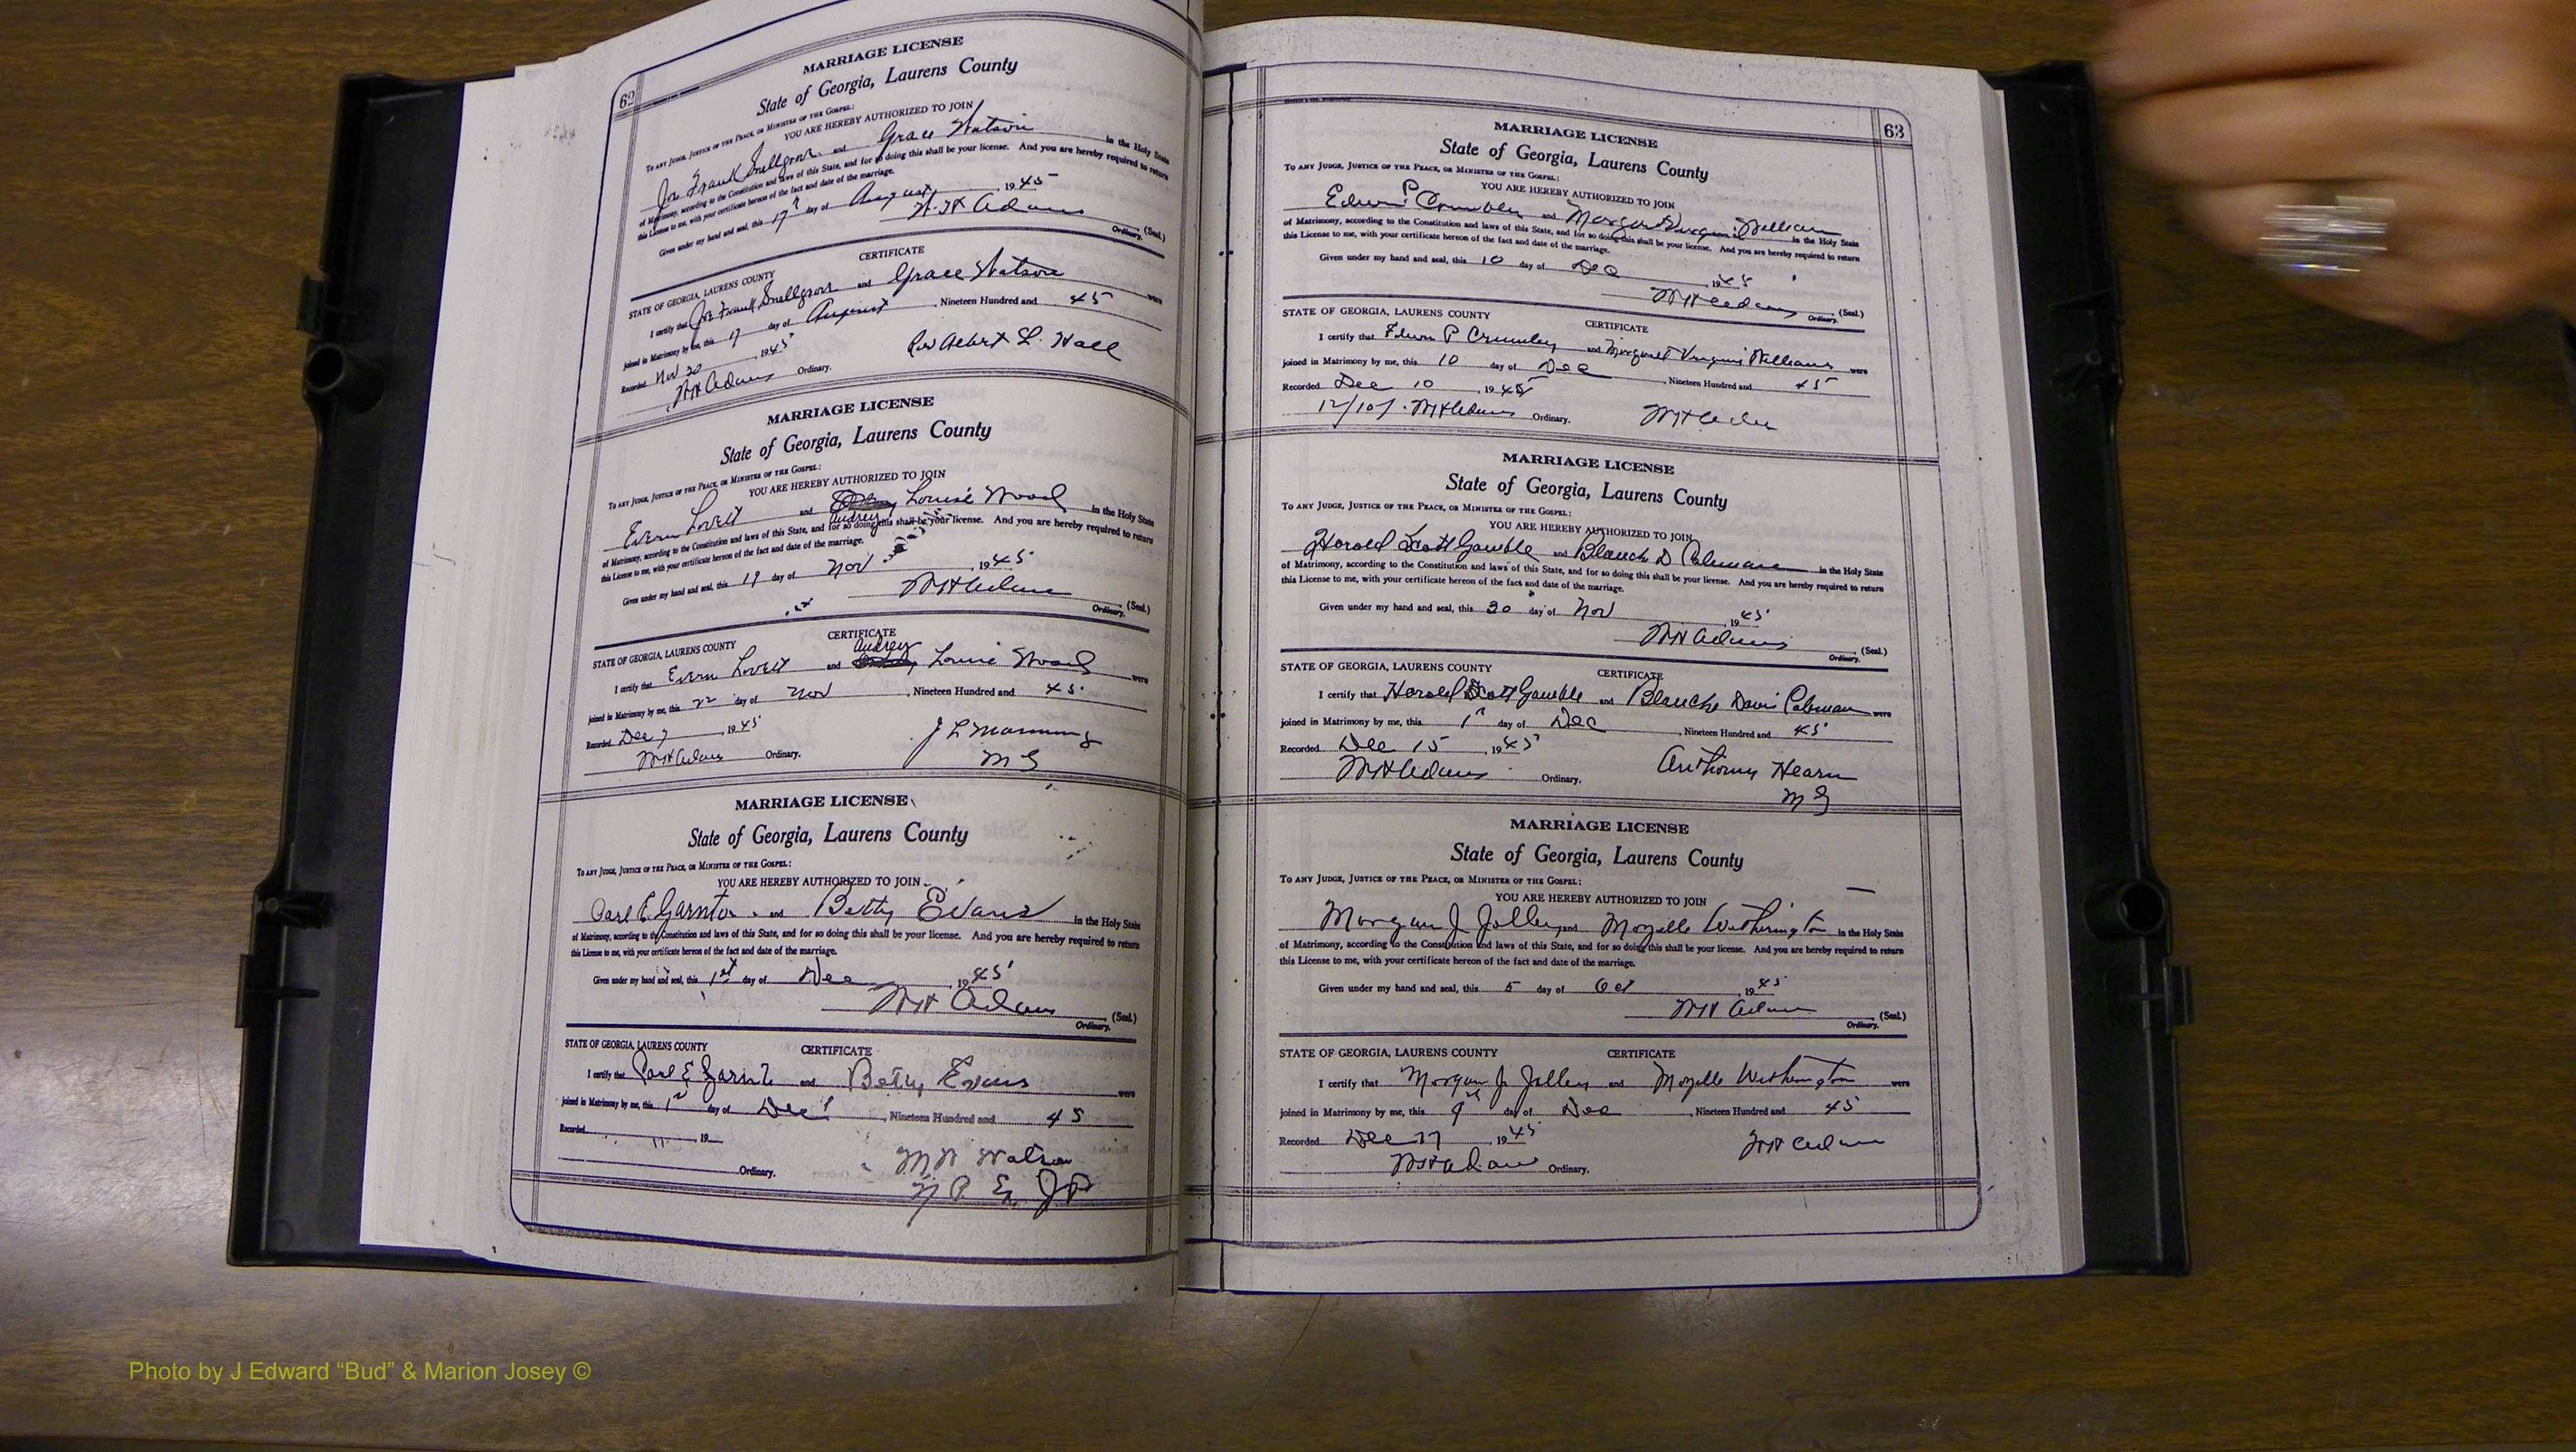 62
MARRIAGE LICENSE
State of Georgia, Laurens County
TO ANY JUDGE, JUSTICE OF THE PEACE, OR MINISTER OF THE GOSPEL:
YOU ARE HEREBY AUTHORIZED TO JOIN
Joe Frank Snellgrove and Grace Watson in the Holy State
of Matrimony, according to the Constitution and laws of this State, and for so doing this shall be your license. And you are hereby required to return
this License to me, with your certificate hereon of the fact and date of the marriage.
Given under my hand and seal, this 17th day of August, 1945
W. H. Adams (Seal.)
Ordinary.
STATE OF GEORGIA, LAURENS COUNTY CERTIFICATE
I certify that Joe Frank Snellgrove and Grace Watson were
joined in Matrimony by me, this 17 day of August, Nineteen Hundred and 45
Recorded Nov 20, 1945 Rev Albert L. Hall
WH Adams Ordinary.
MARRIAGE LICENSE
State of Georgia, Laurens County
TO ANY JUDGE, JUSTICE OF THE PEACE, OR MINISTER OF THE GOSPEL:
YOU ARE HEREBY AUTHORIZED TO JOIN
Evern Lovett and Audrey Louise Wood in the Holy State
of Matrimony, according to the Constitution and laws of this State, and for so doing this shall be your license. And you are hereby required to return
this License to me, with your certificate hereon of the fact and date of the marriage.
Given under my hand and seal, this 19 day of Nov, 1945
WH Adams (Seal.)
Ordinary.
STATE OF GEORGIA, LAURENS COUNTY CERTIFICATE
I certify that Evern Lovett and Audrey Louise Wood were
joined in Matrimony by me, this 22 day of Nov, Nineteen Hundred and 45
Recorded Dec 7, 1945 J L Manning
WH Adams Ordinary. M G
MARRIAGE LICENSE
State of Georgia, Laurens County
TO ANY JUDGE, JUSTICE OF THE PEACE, OR MINISTER OF THE GOSPEL:
YOU ARE HEREBY AUTHORIZED TO JOIN
Carl E Garnto and Betty Evans in the Holy State
of Matrimony, according to the Constitution and laws of this State, and for so doing this shall be your license. And you are hereby required to return
this License to me, with your certificate hereon of the fact and date of the marriage.
Given under my hand and seal, this 1st day of Dec, 1945
WH Adams (Seal.)
Ordinary.
STATE OF GEORGIA, LAURENS COUNTY CERTIFICATE
I certify that Carl E Garnto and Betty Evans were
joined in Matrimony by me, this 1st day of Dec, Nineteen Hundred and 45
Recorded 19 
Ordinary. Watson
N P Ex JP
63
MARRIAGE LICENSE
State of Georgia, Laurens County
TO ANY JUDGE, JUSTICE OF THE PEACE, OR MINISTER OF THE GOSPEL:
YOU ARE HEREBY AUTHORIZED TO JOIN
Edwin P Crumbley and Margaret Virginia Williams in the Holy State
of Matrimony, according to the Constitution and laws of this State, and for so doing this shall be your license. And you are hereby required to return
this License to me, with your certificate hereon of the fact and date of the marriage.
Given under my hand and seal, this 10 day of Dec, 1945
WH Adams (Seal.)
Ordinary.
STATE OF GEORGIA, LAURENS COUNTY CERTIFICATE
I certify that Edwin P Crumley and Margaret Virginia Williams were
joined in Matrimony by me, this 10 day of Dec, Nineteen Hundred and 45
Recorded Dec 10, 1945
12/10/ WH Adams Ordinary. WH Adams
MARRIAGE LICENSE
State of Georgia, Laurens County
TO ANY JUDGE, JUSTICE OF THE PEACE, OR MINISTER OF THE GOSPEL:
YOU ARE HEREBY AUTHORIZED TO JOIN
Harold Scott Gamble and Blanch D Coleman in the Holy State
of Matrimony, according to the Constitution and laws of this State, and for so doing this shall be your license. And you are hereby required to return
this License to me, with your certificate hereon of the fact and date of the marriage.
Given under my hand and seal, this 30 day of Nov, 1945
WH Adams (Seal.)
Ordinary.
STATE OF GEORGIA, LAURENS COUNTY CERTIFICATE
I certify that Harold Scott Gamble and Blanche Davis Coleman were
joined in Matrimony by me, this 1st day of Dec, Nineteen Hundred and 45
Recorded Dec 15, 1945 Anthony Hearn
WH Adams Ordinary. M G
MARRIAGE LICENSE
State of Georgia, Laurens County
TO ANY JUDGE, JUSTICE OF THE PEACE, OR MINISTER OF THE GOSPEL:
YOU ARE HEREBY AUTHORIZED TO JOIN
Morgan J Jolley and Mozelle Witherington in the Holy State
of Matrimony, according to the Constitution and laws of this State, and for so doing this shall be your license. And you are hereby required to return
this License to me, with your certificate hereon of the fact and date of the marriage.
Given under my hand and seal, this 5 day of Oct, 1945
WH Adams (Seal.)
Ordinary.
STATE OF GEORGIA, LAURENS COUNTY CERTIFICATE
I certify that Morgan J Jolley and Mozelle Witherington were
joined in Matrimony by me, this day of Dec, Nineteen Hundred and 45
Recorded Dec 17, 1945 WH Adams
WH Adams Ordinary.
Photo by J Edward “Bud” & Marion Josey ©